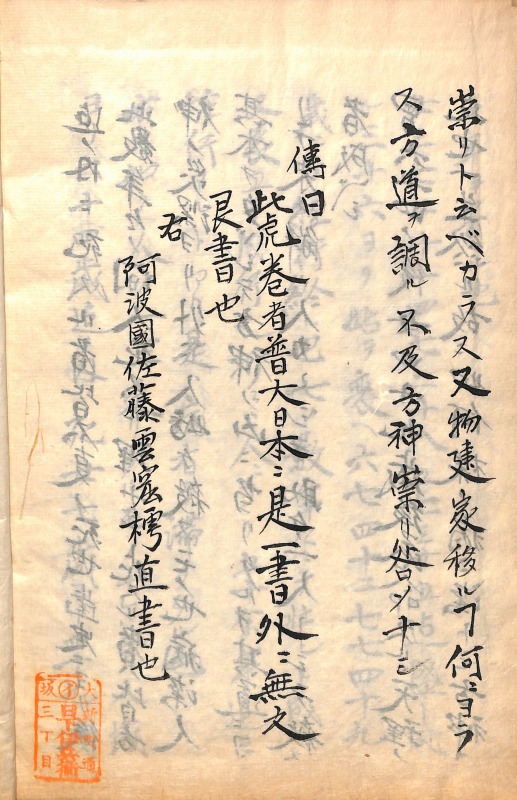 祟リト云ベカラス又物建家移ルヿ何ニヨラ
ス方道ヲ調ル不及方神祟リ咎ソナシ
傳曰
此虎巻者普大日本ニ是一書外ニ無之
良書也
右
阿波國佐藤雲窓樗直書也
大新町通
坂三丁目